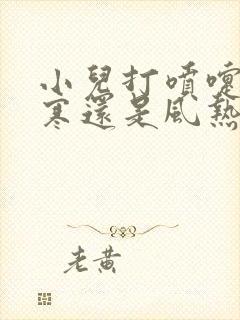 小兒打噴嚏
寒還是風熱
老黃